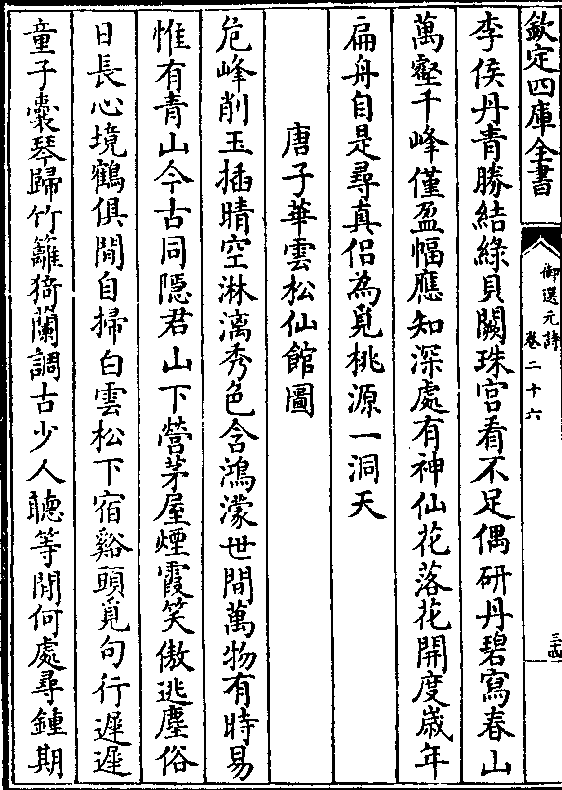 欽定四庫全書
御選元詩
卷二十六
三四
李侯丹青勝結綠貝闕珠宮看不足偶研丹碧寫春山
萬壑千峰僅盈幅應知深處有神仙花落花開度歲年
扁舟自是尋真侶為覓桃源一洞天
唐子華雲松仙館圖
危峰削玉插晴空淋漓秀色含鴻濛世間萬物有時易
惟有青山今古同隱君山下營茅屋煙霞笑傲逃塵俗
日長心境鶴俱閒自掃白雲松下宿谿頭覓句行遲遲
童子囊琴歸竹籬猗蘭調古少人聽等閒何處尋鍾期